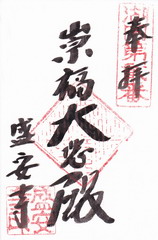 奉拝
崇福大悲殿
盛安寺